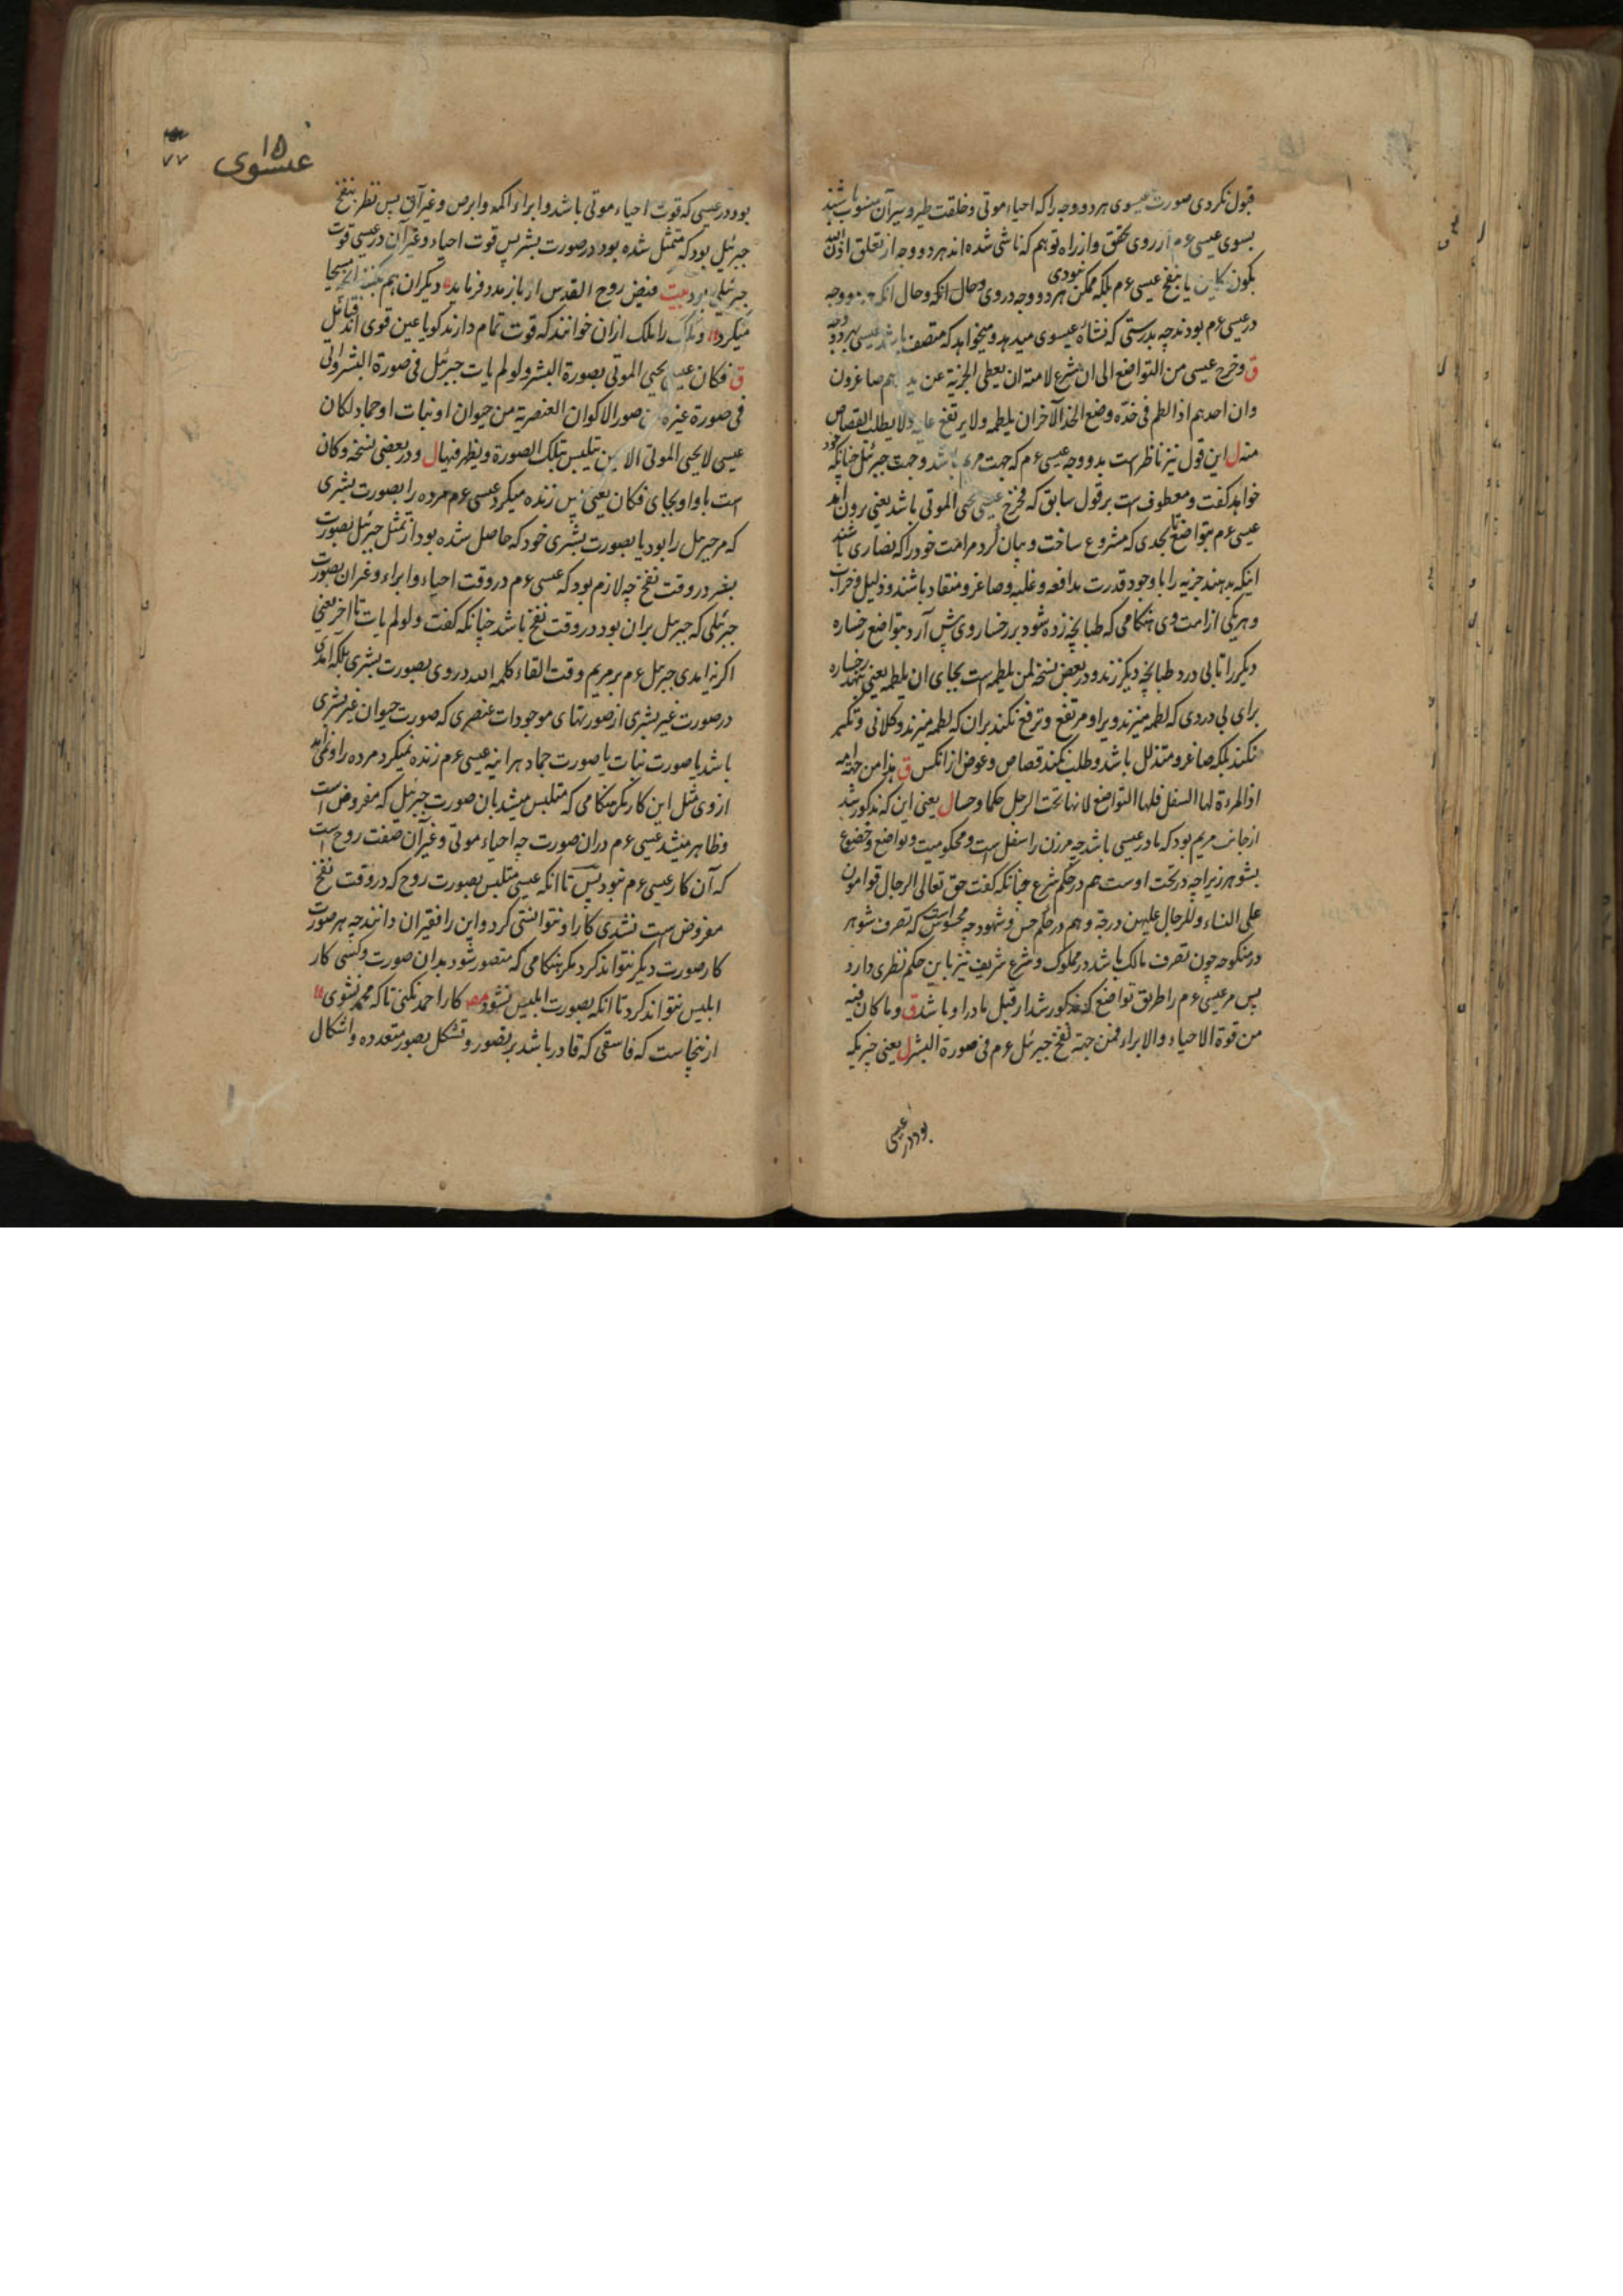 قبول نکردی صورت عیسوی هر دو وجه را که احیاء موتی و خلقت طیر و سر آن منسوب باشند
بسوی عیسی ءم از روی تحقق و از راه توهم که ناشی شده اند هر دو وجه از تعلق اذن الله
بکون کاین یا بنفخ عیسی ءم بلکه ممکن نبودی هر دو وجه در وی و حال انکه و حال انکه وجه
در عیسی ءم بودند چه بدرستی که نشاه عیسوی میدهد و میخواهد که متصف باشد عیسی بهر دو وجه
ق و خرج عیسی من التواضع الی ان شرع لامته ان یعطی الجزیة عن ید هم صاغرون
وان احدهم اذا لطم فی خده وضع الخد الآخر ان یلطمه ولا یرتفع علیه ولا یطلب القصاص
منه ل این قول نیز ناظر است بدو وجه عیسی ءم که جهت مریم باشد و جهت جبرئیل چنانکه خود
خواهد گفت و معطوف است بر قول سابق که فخرج عیسی یحیی الموتی باشد یعنی برون امد
عیسی ءم بتواضع تا بحدی که مشروع ساخت و بیان کرد مرامت خود را که نصاری باشند
اینکه بدهند جزیه را با وجود قدرت مدافعه و غلبه و صاغر و منقاد باشند و ذلیل و خراب
و هر یکی از امت وی هنکامی که طبانچه زده شود بر رخسار وی پیش آرد بتواضع رخساره
دیکر را تا بی درد طبانچه دیکر زند و در بعض نسخه لمن یلطمه است بجای ان یلطمه یعنی بنهد رخساره
برای بی دردی که لطمه میزند ویرا و مرتفع و ترفع نکند بران که لطمه میزند و کلانی و تکبر
نکند بلکه صاغر و متذلل باشد و طلب نکند قصاص و عوض از انکس ق هذا من جهة امه
اذ المرءة لها السفل فلها التواضع لانها تحت الرجل حکما و حسا ل یعنی این که مذکور شد
از جانب مریم بود که مادر عیسی باشد چه مر زن را سفل است و محکومیت و تواضع و خضوع
بشوهر زیرا چه در تحت اوست هم در حکم شرع چنانکه گفت حق تعالی الرجال قوامون
علی النساء و للرجال علیهن درجة و هم در حکم حس و شهود چه محسوس است که تصرف شوهر
در منکوحه چون تصرف مالک باشد در مملوک و شرع شریف نیز باین حکم نظری دارد
پس مر عیسی ءم را طریق تواضع که مذکور شد از قبل مادر او باشد ق و ما کان فیه
من قوة الاحیاء و الابراء فمن جهة نفخ جبرئل ءم فی صورة البشر ل یعنی چیزیکه
بود در عیسی
۱۵
عیسوی
۷۷
بود در عیسی که قوت احیاء موتی باشد و ابراء اکمه و ابرص و غیر آن پس نظر بنفخ
جبرئیل بود که متمثل شده بود در صورت بشر پس قوت احیاء و غیر آن در عیسی قوت
جبرئلی بود بیت فیض روح القدس ار باز مدد فرماید دیکران هم بکنند انچه مسیحا
میکرد و ملک را ملک ازان خوانند که قوت تمام دارند کویا عین قوی اند
ق فکان عیسی یحیی الموتی بصورة البشر و لو لم یات جبرئیل فی صورة البشر و اتی
فی صورة غیره من صور الاکوان العنصریة من حیوان او نبات او جماد لکان
عیسی لا یحیی الموتی الا حین یتلبس بتلک الصورة و یظهر فیها ل و در بعضی نسخه و کان
است با واو بجای فکان یعنی پس زنده میکرد عیسی ءم مرده را بصورت بشری
که مر جبرئل را بود یا بصورت بشری خود که حاصل شده بود از تمثل جبرئل بصورت
بشر در وقت نفخ چه لازم بود که عیسی ءم در وقت احیاء و ابراء و غیر ان بصورت
جبرئلی که جبرئل بران بود در وقت نفخ باشد چنانکه گفت و لو لم یات تا اخر یعنی
اکر نه امدی جبرئل ءم بر مریم وقت القاء کلمه الله در وی بصورت بشری بلکه امدی
در صورت غیر بشری از صورتهای موجودات عنصری که صورت حیوان غیر بشری
باشد یا صورت نبات یا صورت جماد هر اینه عیسی ءم زنده نمیکرد مرده را و نمی امد
از وی مثل این کار مکر هنکامی که متلبس میشد بان صورت جبرئیل که مفروض است
و ظاهر میشد عیسی ءم دران صورت چه احیاء موتی و غیر آن صفت روح است
که آن کار عیسی ءم نبود پس تا انکه عیسی متلبس بصورت روح که در وقت نفخ
مفروض است نشدی کار او نتوانستی کرد و این را فقیران دانند چه هر صورت
کار صورت دیکر نتواند کرد مکر هنکامی که متصور شود بدان صورت و کسی کار
ابلیس نتواند کرد تا انکه بصورت ابلیس نشود مصر کار احمد نکنی تا که محمد نشوی
از ینجاست که فاسقی که قادر باشد بر تصور و تشکل بصور متعدده و اشکال